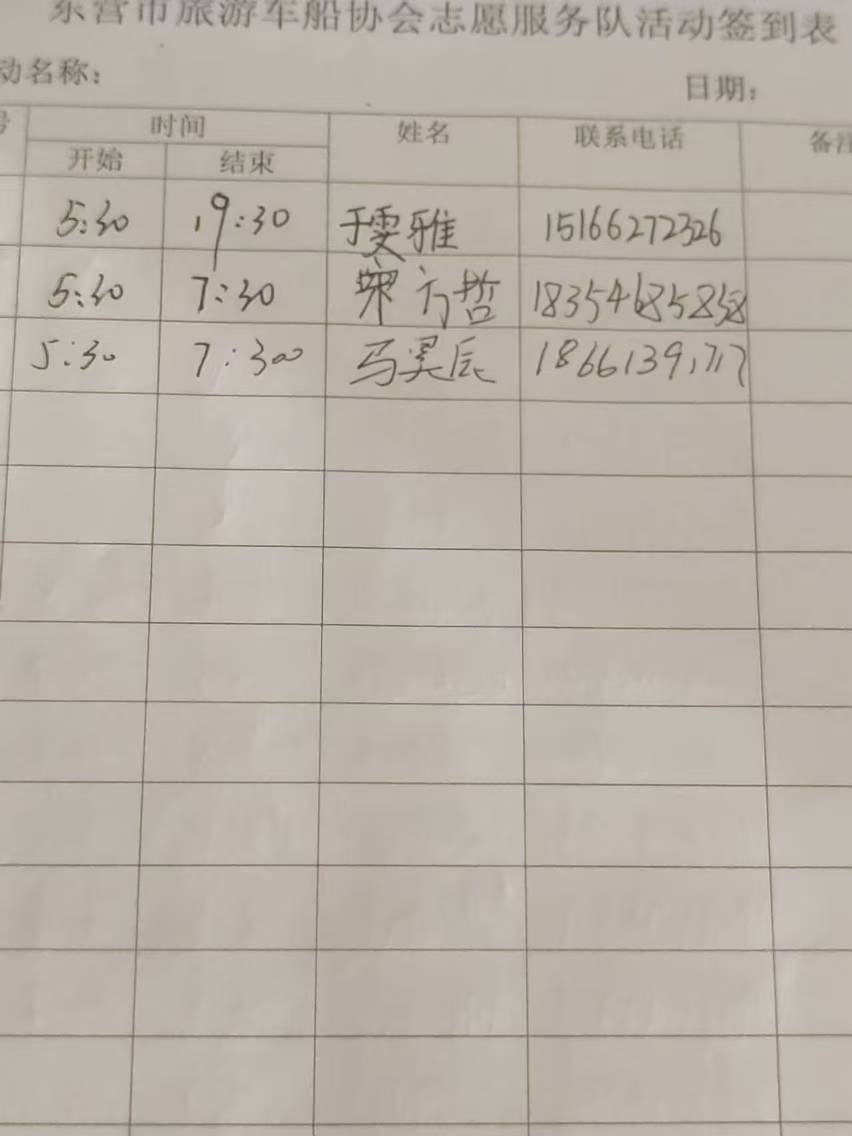 东营市旅游车船协会志愿服务队活动签到表
动名称： 日期：
号 时间 姓名 联系电话 备注
开始 结束
5:30 19:30 于雯雅 15166272326
5:30 7:30 宋方哲 18354685858
5:30 7:30 马昊辰 18661391717